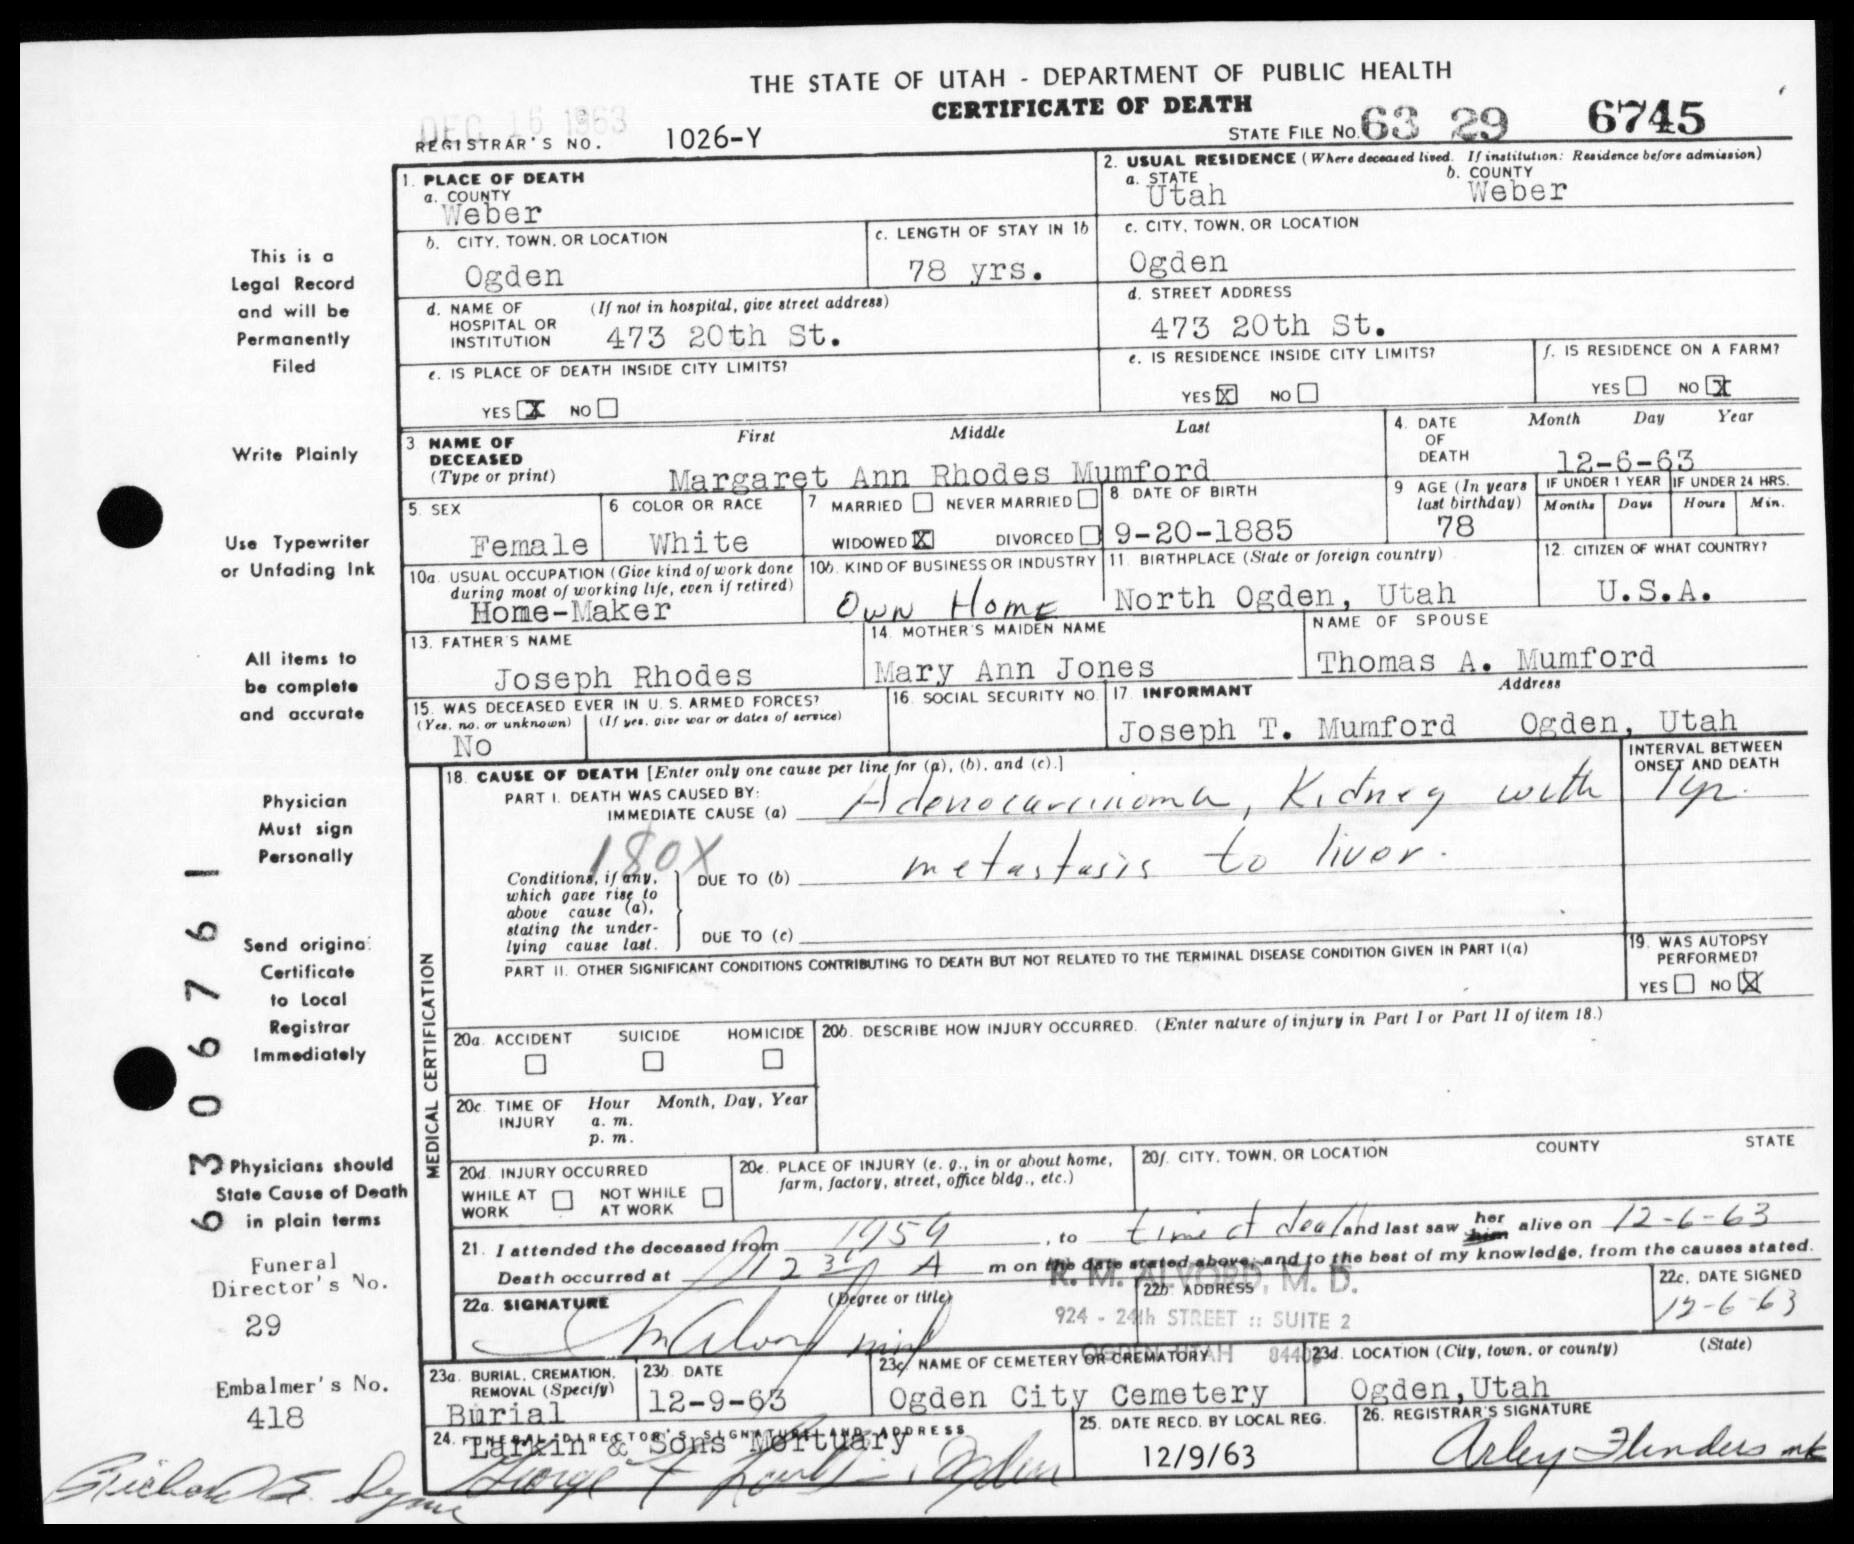 THE STATE OF UTAH - DEPARTMENT OF PUBLIC HEALTH
CERTIFICATE OF DEATH
DEC 16 1963
REGISTRAR'S NO. 1026-Y
STATE FILE NO. 63 29 6745
1. PLACE OF DEATH
a. COUNTY
Weber
2. USUAL RESIDENCE (Where deceased lived. If institution: Residence before admission)
a. STATE
Utah
b. COUNTY
Weber
b. CITY, TOWN, OR LOCATION
Ogden
c. LENGTH OF STAY IN 1b
78 yrs.
c. CITY, TOWN, OR LOCATION
Ogden
d. NAME OF HOSPITAL OR INSTITUTION
(If not in hospital, give street address)
473 20th St.
d. STREET ADDRESS
473 20th St.
e. IS PLACE OF DEATH INSIDE CITY LIMITS?
YES X NO
e. IS RESIDENCE INSIDE CITY LIMITS?
YES X NO
f. IS RESIDENCE ON A FARM?
YES NO X
3 NAME OF DECEASED
(Type or print)
First Middle Last
Margaret Ann Rhodes Mumford
4. DATE OF DEATH
Month Day Year
12-6-63
5. SEX
Female
6 COLOR OR RACE
White
7 MARRIED NEVER MARRIED
WIDOWED X DIVORCED
8. DATE OF BIRTH
9-20-1885
9 AGE (In years last birthday)
78
IF UNDER 1 YEAR
Months Days
IF UNDER 24 HRS.
Hours Min.
10a. USUAL OCCUPATION (Give kind of work done during most of working life, even if retired)
Home-Maker
10b. KIND OF BUSINESS OR INDUSTRY
Own Home
11. BIRTHPLACE (State or foreign country)
North Ogden, Utah
12. CITIZEN OF WHAT COUNTRY?
U.S.A.
13. FATHER'S NAME
Joseph Rhodes
14. MOTHER'S MAIDEN NAME
Mary Ann Jones
NAME OF SPOUSE
Thomas A. Mumford
15. WAS DECEASED EVER IN U. S. ARMED FORCES?
(Yes, no. or unknown) (If yes, give war or dates of service)
No
16. SOCIAL SECURITY NO.
17. INFORMANT Address
Joseph T. Mumford Ogden, Utah
MEDICAL CERTIFICATION
18. CAUSE OF DEATH [Enter only one cause per line for (a), (b), and (c).]
INTERVAL BETWEEN ONSET AND DEATH
PART I. DEATH WAS CAUSED BY:
IMMEDIATE CAUSE (a) Adenocarcinoma, Kidney with 1 yr.
180X
metastasis to liver.
Conditions, if any, which gave rise to above cause (a), stating the underlying cause last.
DUE TO (b)
DUE TO (c)
PART II. OTHER SIGNIFICANT CONDITIONS CONTRIBUTING TO DEATH BUT NOT RELATED TO THE TERMINAL DISEASE CONDITION GIVEN IN PART I(a)
19. WAS AUTOPSY PERFORMED?
YES NO X
20a. ACCIDENT SUICIDE HOMICIDE
20b. DESCRIBE HOW INJURY OCCURRED. (Enter nature of injury in Part I or Part II of item 18.)
20c. TIME OF INJURY
Hour Month, Day, Year
a. m.
p. m.
20d. INJURY OCCURRED
WHILE AT WORK NOT WHILE AT WORK
20e. PLACE OF INJURY (e. g., in or about home, farm, factory, street, office bldg., etc.)
20f. CITY, TOWN, OR LOCATION COUNTY STATE
21. I attended the deceased from 1959, to time of death and last saw her him alive on 12-6-63
Death occurred at A m on the date stated above; and to the best of my knowledge, from the causes stated.
22a. SIGNATURE (Degree or title)
22b. ADDRESS
R. M. ALVORD, M. D.
924 - 24th STREET :: SUITE 2
OGDEN, UTAH
22c. DATE SIGNED
12-6-63
23a. BURIAL, CREMATION, REMOVAL (Specify)
Burial
23b. DATE
12-9-63
23c. NAME OF CEMETERY OR CREMATORY
Ogden City Cemetery
23d. LOCATION (City, town, or county) (State)
Ogden, Utah
24. FUNERAL DIRECTOR'S SIGNATURE AND ADDRESS
Larkin & Sons Mortuary
25. DATE RECD. BY LOCAL REG.
12/9/63
26. REGISTRAR'S SIGNATURE
Arley Flinders
This is a
Legal Record
and will be
Permanently
Filed
Write Plainly
Use Typewriter
or Unfading Ink
All items to
be complete
and accurate
Physician
Must sign
Personally
Send original
Certificate
to Local
Registrar
Immediately
Physicians should
State Cause of Death
in plain terms
Funeral
Director's No.
29
Embalmer's No.
418
63 06761